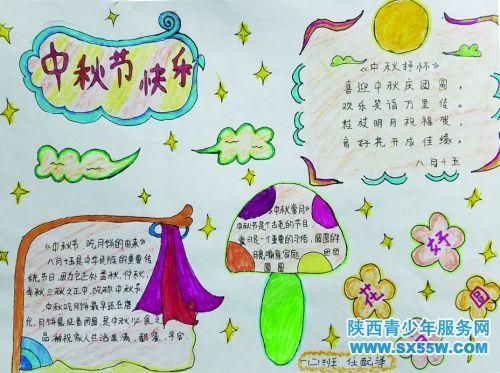 中秋节快乐
《中秋抒怀》
喜迎中秋庆团圆，
欢乐笑语万里传。
桂枝明月祝福贺，
月好花开成佳缘。
八月十五
《中秋节，吃月饼的由来》
八月十五是中华民族的重要传
统节日，因为它正处孟秋、仲秋、
季秋三秋之正中，故称中秋节。
中秋吃月饼最早还在唐
代，月饼象征着团圆，是中秋必食之
品，祝祝家人生活美满、甜蜜、平安。
《中秋赏月》
中秋节是个古老的节日，
赏月是一个重要的习俗，圆圆的
月亮 家庭
团圆
花
好
月
圆
一(2)班 任
陕西青少年服务网
www.sx55w.com